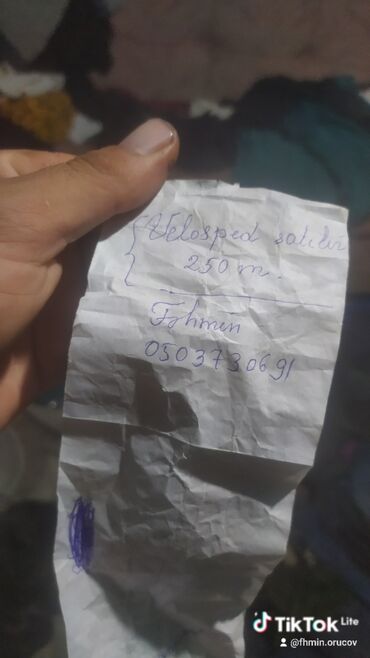 Velosped satılır
250 m.
Fəhmin
0503730691
TikTok Lite
@fhmin.orucov